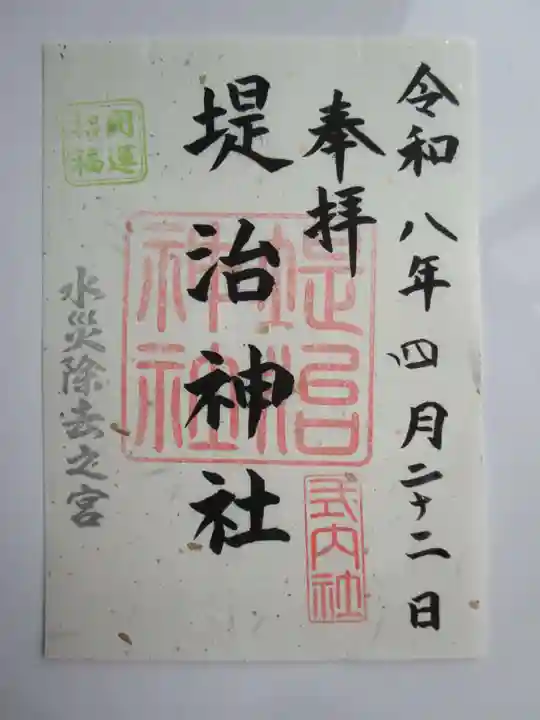 令和八年四月二十二日
奉拝
堤治神社
堤治神社
式内社
開運招福
水災除去之宮